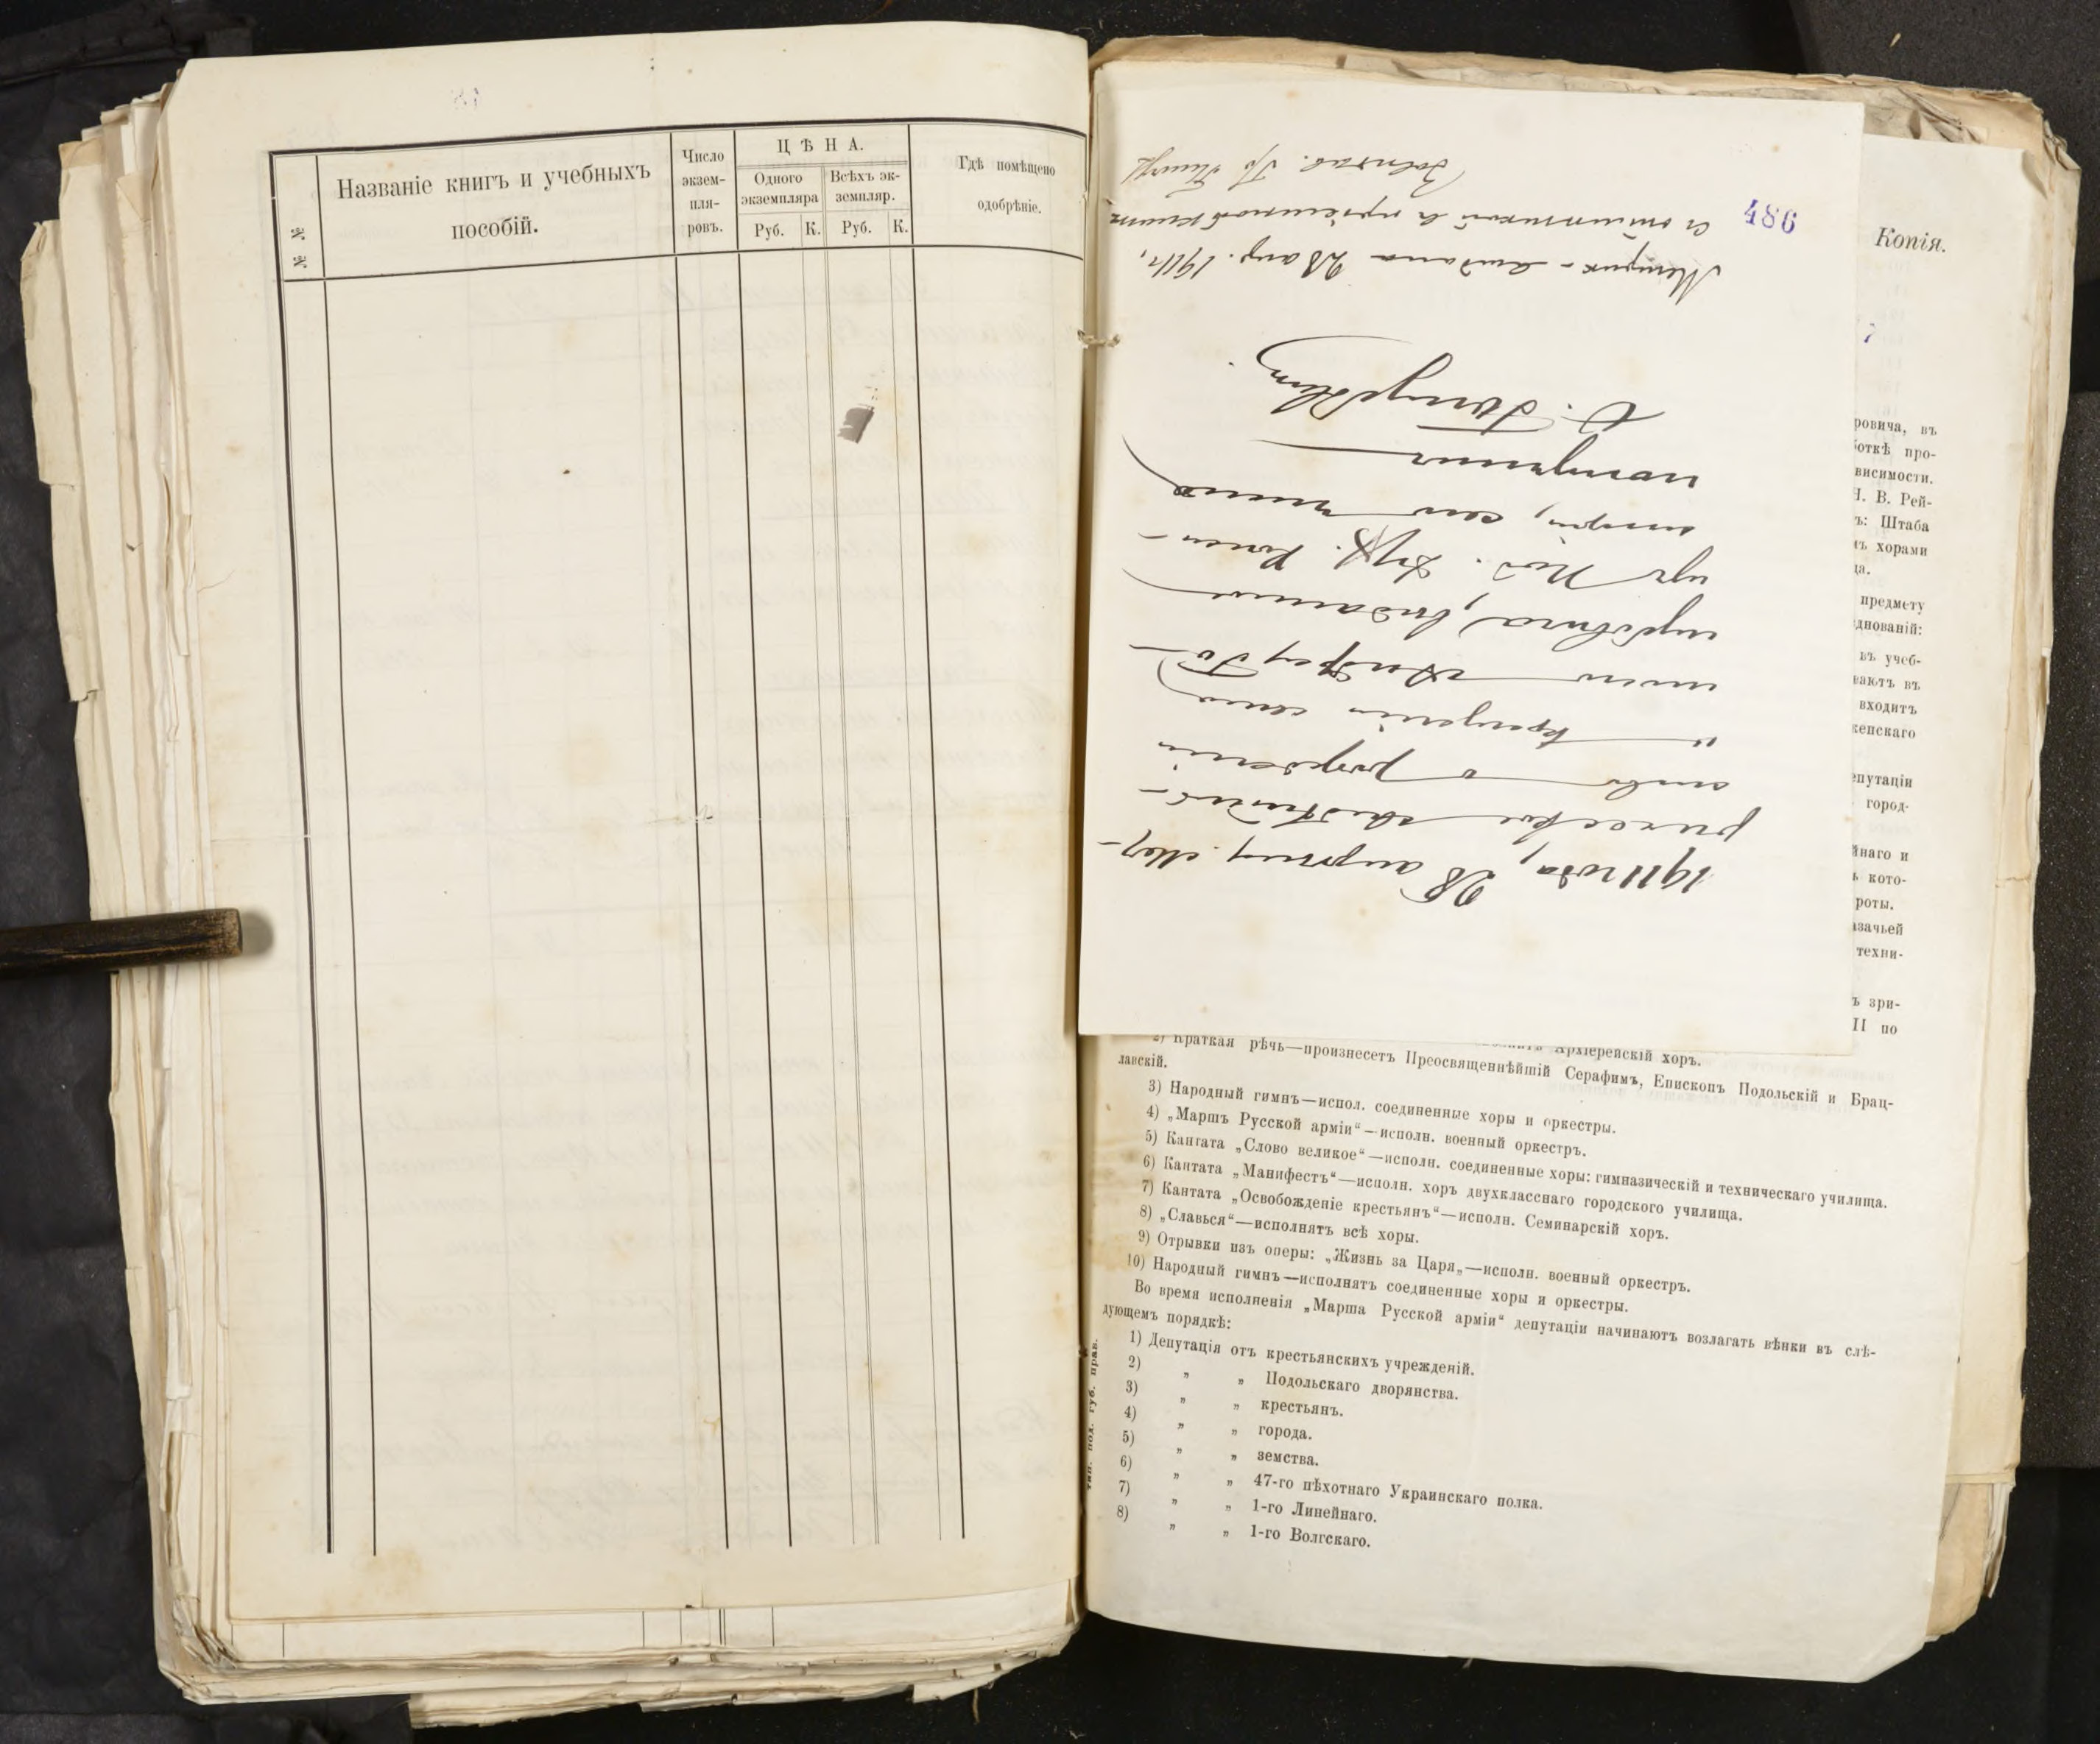 № №
Названіе книгъ и учебныхъ
пособій.
Число
экзем-
пля-
ровъ.
ЦѢНА.
Одного
экземпляра
Всѣхъ эк-
земпляр.
Руб.
К.
Руб.
К.
Гдѣ помѣщено
одобрѣніе.
486
Копія.
1911 года, 28 августа, мет-
рическое свидѣтель-
ство о рожденіи
и крещеніи сына
моего Андрея
выданное
изъ Под. Дух. Консис-
торіи, сего числа
получилъ
Метрик. выдана 28 авг. 1911 г.
ровича, въ
боткѣ про-
висимости.
Н. В. Рей-
ъ: Штаба
хорами
да.
предмету
днованій:
въ учеб-
ваютъ въ
входитъ
кенскаго
епутаціи
город-
йнаго и
кото-
роты.
азачьей
техни-
ъ зри-
II по
Архіерейскій хоръ.
2) Краткая рѣчь—произнесетъ Преосвященнѣйшій Серафимъ, Епископъ Подольскій и Брац-
лавскій.
3) Народный гимнъ—испол. соединенные хоры и оркестры.
4) „Маршъ Русской арміи“—исполн. военный оркестръ.
5) Кантата „Слово великое“—исполн. соединенные хоры: гимназическій и техническаго училища.
6) Кантата „Манифестъ“—исполн. хоръ двухкласснаго городского училища.
7) Кантата „Освобожденіе крестьянъ“—исполн. Семинарскій хоръ.
8) „Славься“—исполнятъ всѣ хоры.
9) Отрывки изъ оперы: „Жизнь за Царя„—исполн. военный оркестръ.
10) Народный гимнъ—исполнятъ соединенные хоры и оркестры.
Во время исполненія „Марша Русской арміи“ депутаціи начинаютъ возлагать вѣнки въ слѣ-
дующемъ порядкѣ:
1) Депутація отъ крестьянскихъ учрежденій.
2) „ „ Подольскаго дворянства.
3) „ „ крестьянъ.
4) „ „ города.
5) „ „ земства.
6) „ „ 47-го пѣхотнаго Украинскаго полка.
7) „ „ 1-го Линейнаго.
8) „ „ 1-го Волгскаго.
тип. под. губ. прав.